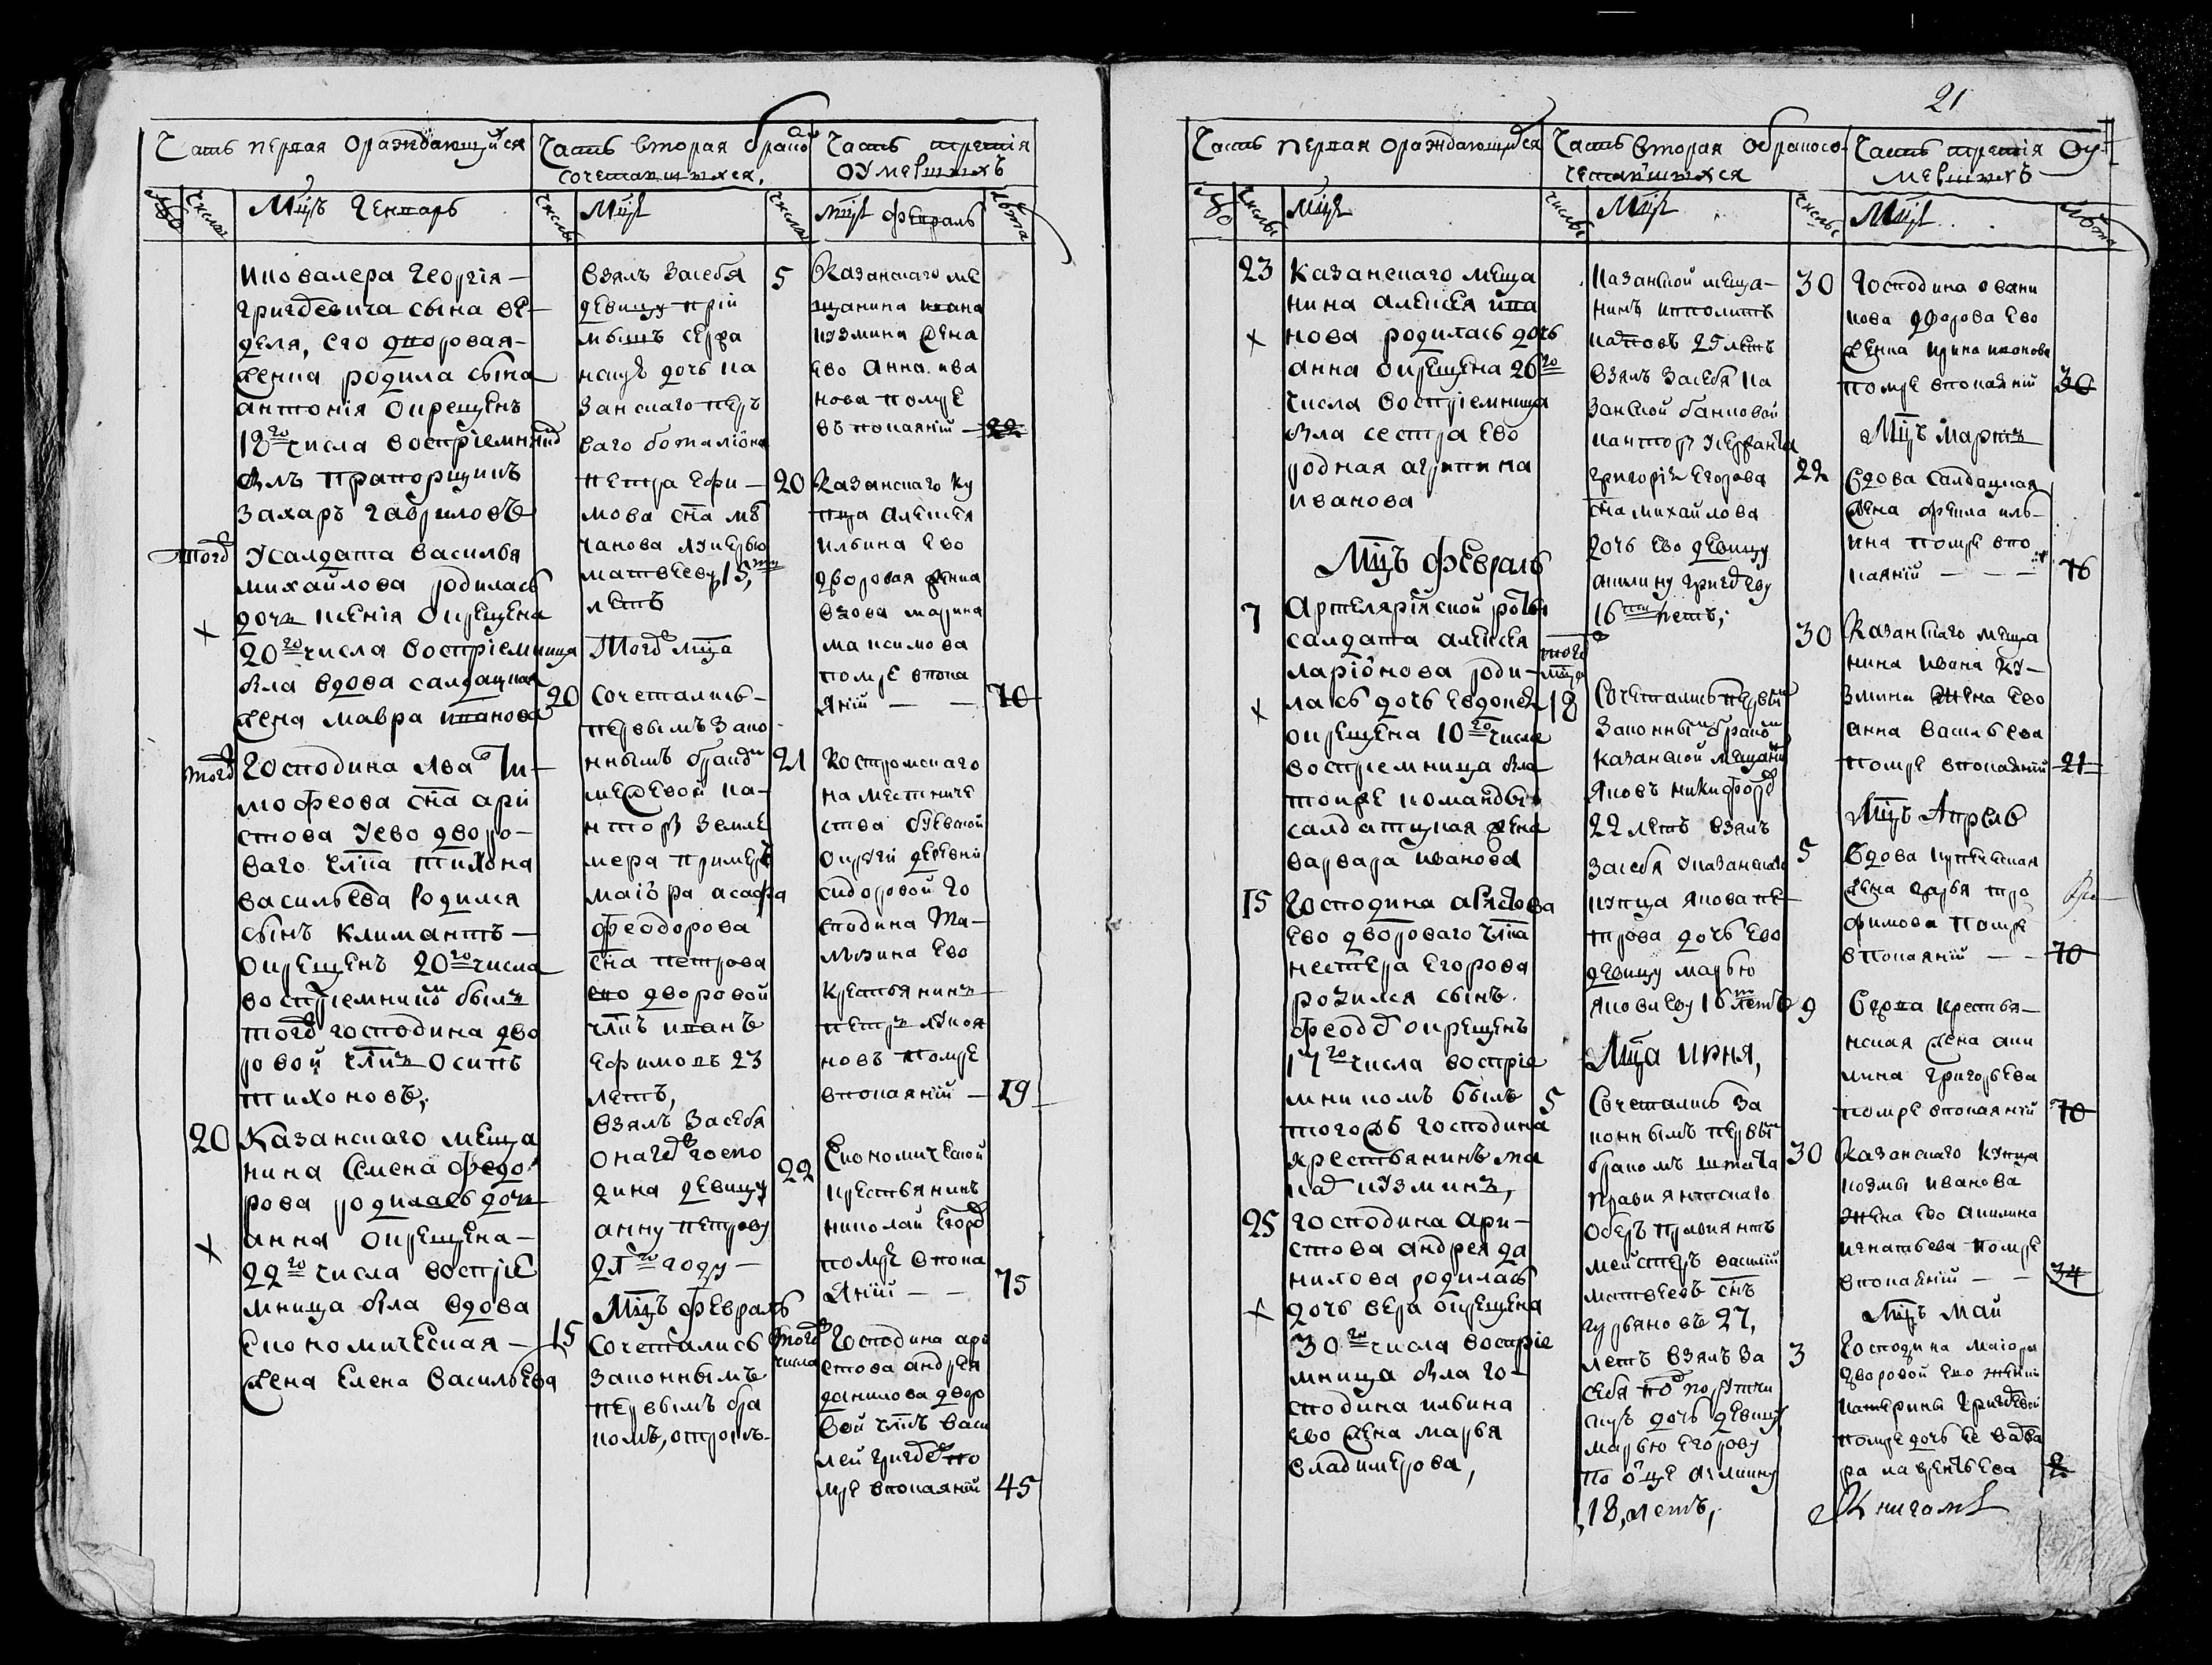 Часть первая ораждающихся
Мцъ Генварь
числы
Иновалера Георгия
Григорьевича сына ве
деля, его дворовая
женка родила сына
антонія окрещенъ
18го числа воспріемник
былъ прапорщикъ
Захаръ Гавриловъ
того
У салдата Василья
михайлова родилась
дочь ксенія окрещена
20го числа воспріемница
была вдова салдацкая
жена мавра иванова
того
Господина Льва Ти
мофеова сна ари
стова у ево дворо
ваго члка тихона
васильева родился
сынъ климантъ
окрещенъ 20го числа
воспріемникъ былъ
того господина дво
ровой члкъ осипъ
тихоновъ,
20 Казанскаго меща
нина Семена федо
рова родилась дочь
анна окрещена
22го числа воспріе
мница была вдова
Економическая
жена Елена Васильева
Часть вторая обрако
сочетавшихся.
числы
Мцъ
взялъ засебя
девицу
дочь ка
занскаго пер
ваго баталіона
петра ефи
мова сна
чанова лукерью
матвееву 15,
летъ
Того мца
20 Сочетались
первымъ зако
ннымъ бракомъ
межевой ка
нторы земле
мера примеръ
маіора асафа
феодорова
сна петрова
ево дворовой
члкъ иванъ
ефимовъ 23
летъ,
взялъ засебя
онаго госпо
дина девицу
анну петрову
21го году
Мцъ февраль
15 Сочетались
законнымъ
первымъ бра
комъ,
Часть третія
оумершихъ
числы
мцъ февраль
лѣта
5 Казанскаго ме
щанина ивана
кузмина жена
ево Анна ива
нова помре
въ покаяніи 22
20 Казанскаго ку
пца алексея
ильина ево
дворовая женка
вдова марина
максимова
помре впока
яніи 70
21 Костромскаго
наместниче
ства буевской
округи деревни
сидоровой го
сподина
ево
крестьянинъ
петръ лукоя
новъ помре
впокаяніи 19
22 Економической
крестьянинъ
николай Егоров
помре впока
яніи 75
того
числа
Господина ари
стова андрея
данилова дворо
вой члкъ васи
лей григорьев по
мре впокаяніи 45
21
Часть первая ораждающихся
числы
Мцъ
23 Казанскаго меща
нина алексея ива
нова родилась дочь
анна окрещена 26го
числа воспріемница
была сестра ево
родная агрипина
иванова
Мцъ февраль
7 Артелярійской роты
салдата алексея
ларіонова роди
лась дочь евдокея
окрещена 10го числа
воспріемница была
тоире команды
салдатцкая жена
варвара иванова
15 Господина аристова
ево двороваго члка
нестера егорова
родился сынъ
феодор окрещенъ
17го числа воспріе
мникомъ былъ
тогожъ господина
крестьянинъ ма
каръ кузминъ,
25 Господина ари
стова андрея да
нилова родилась
дочь вера окрещена
30го числа воспріе
мница была го
сподина ильина
ево жена марья
владимерова,
Часть вторая обракосо
четавшихся
числы
Мцъ
Казанской меща
нинъ ипполитъ
25 летъ
взялъ засебя ка
занской банковой
канторы сержанта
григорія егорова
сна михайлова
дочь ево девицу
акилину григорьеву
16ти летъ;
того
мца
18 Сочетались первым
законным браком
казанской мещанин
яковъ никифоров
22 летъ взялъ
засебя казанскаго
купца якова пе
трова дочь ево
девицу марью
яковлеву 16 летъ
Мца июня,
5 Сочетались за
коннымъ первым
бракомъ штата
правиянтскаго
оберъ провиянтъ
мейстеръ василій
матвеевъ снъ
гурьяновъ 27,
летъ взялъ за
себя подпорутчи
ка дочь девицу
марью егорову
по отце
18, летъ,
Часть третія оу
мершихъ
числы
Мцъ
лѣта
30 Господина овани
кова дворова ево
женка ирина иванова
помре впокаяніи 30
Мцъ мартъ
22 Вдова салдацкая
жена фекла иль
ина помре впо
каяніи 76
30 Казанскаго меща
нина ивана ку
змина жена ево
анна васильева
помре впокаяніи 21
Мцъ Апрель
5 Вдова купеческая
жена дарья тро
фимова помре
впокаяніи 70
9 Вдова крестья
нская жена аки
лина григорьева
помре впокаяніи 70
30 Казанскаго купца
козмы иванова
жена ево акилина
игнатьева помре
впокаяніи 34
Мцъ май
3 Господина маіора
дворовой ево женки
катерины григорьевой
помре дочь ее варва
ра лаврентьева 2
Книгамъ